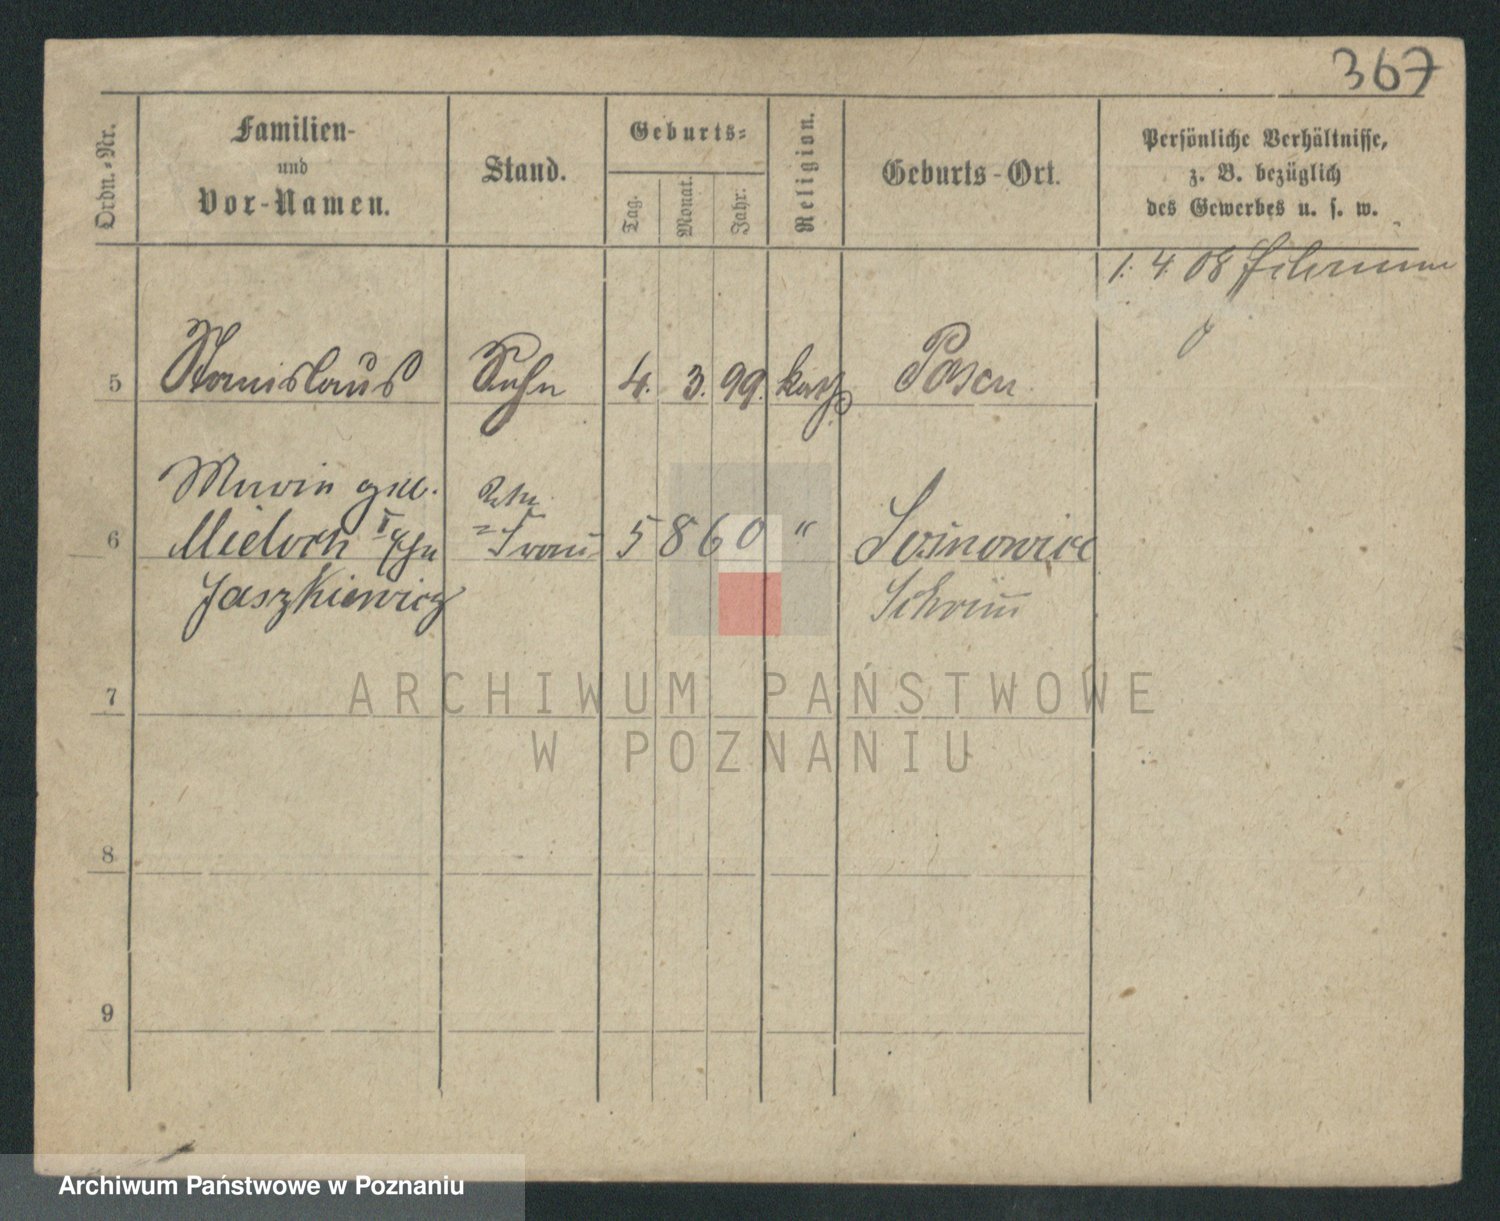 367
Ordn.-Nr.
Familien-
und
Vor-Namen.
Stand.
Geburts-
Tag.
Monat.
Jahr.
Religion.
Geburts-Ort.
Persönliche Verhältnisse,
z. B. bezüglich
des Gewerbes u. s. w.
1. 4. 08
5 Stanislaus Sohn 4. 3. 99. kath. Posen
geb.
6 Mieloch I Ehe Frau 5 8 60 "
Jaszkiewicz Schrimm
7
8
9
ARCHIWUM PAŃSTWOWE
W POZNANIU
Archiwum Państwowe w Poznaniu